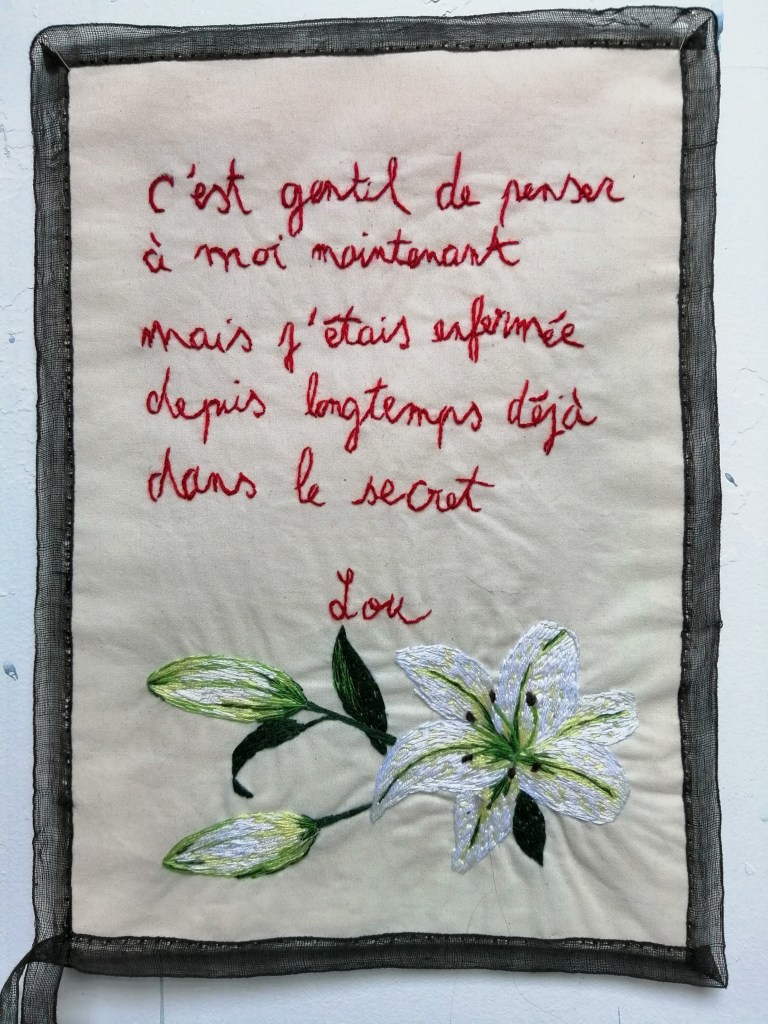 c'est gentil de penser
à moi maintenant
mais j'étais enfermée
depuis longtemps déjà
dans le secret
Lou